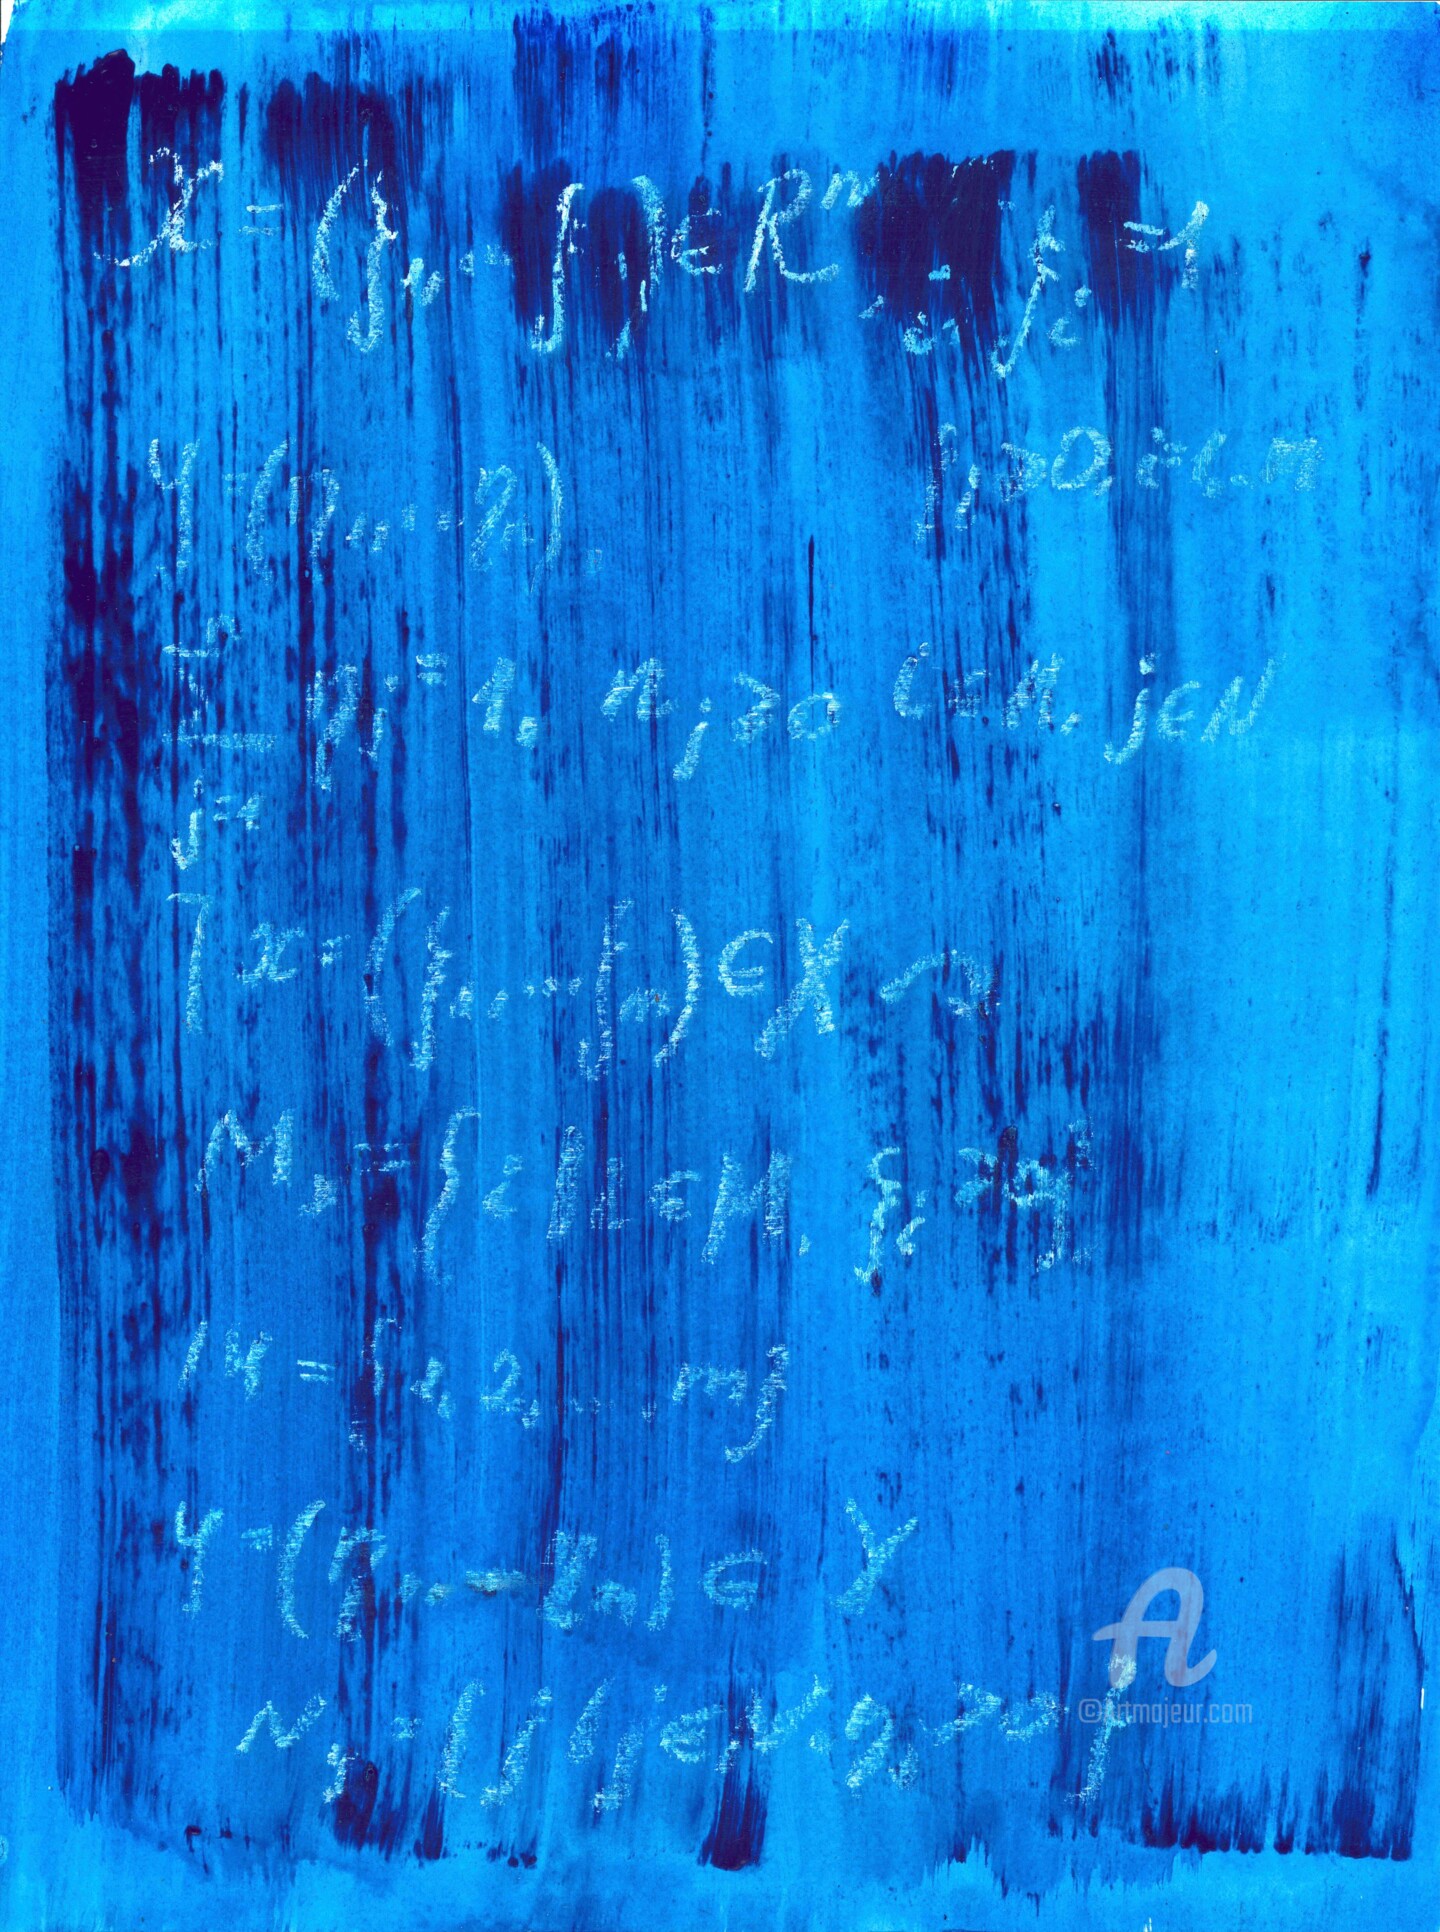 x = (ξ₁, ... ξ,) ∈ Rᵐ, ξᵢ = 1
y = (η₁, ... ηₙ), ξᵢ ≥ 0, i = 1..m
n
Σ ηⱼ = 1, ηⱼ ≥ 0 i ∈ M, j ∈ N
j=1
x = (ξ₁, ... ξₘ) ∈ X
M = { i | i ∈ M, ξᵢ > 0 }
M = {1, 2, ... m}
y = (η₁, ... ηₙ) ∈ Y
N = { j | j ∈ N, η > 0 }
©artmajeur.com